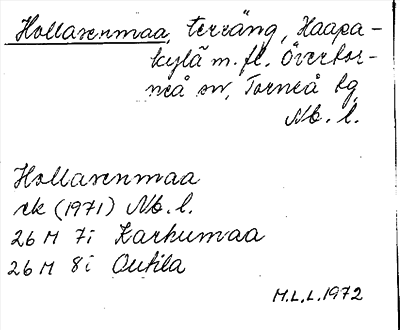 Hollarenmaa, terräng, Haapa-
kylä m.fl. Övertor-
neå sn, Torneå tg
Nb. l.
Hollarenmaa
rk (1971) Nb. l.
26 M 7i Karhumaa
26 M 8i Outila
M.L.L. 1972